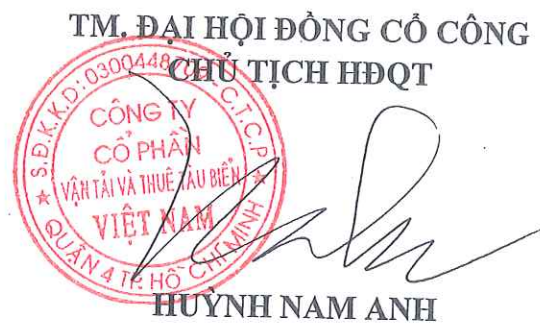 TM. ĐẠI HỘI ĐỒNG CỔ CÔNG
CHỦ TỊCH HĐQT
S.Đ.K.K.D: 0300448 C.T.C.P
CÔNG TY
CỔ PHẦN
VẬN TẢI VÀ THUÊ TÀU BIỂN
VIỆT NAM
QUẬN 4 TP. HỒ CHÍ MINH
HUỲNH NAM ANH